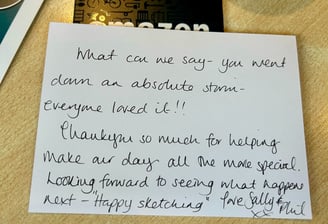 amazon
What can we say - you went
down an absolute storm -
everyone loved it!!
Thankyou so much for helping
make our day all the more special.
Looking forward to seeing what happens
next - "Happy sketching" love Sally &
Phil